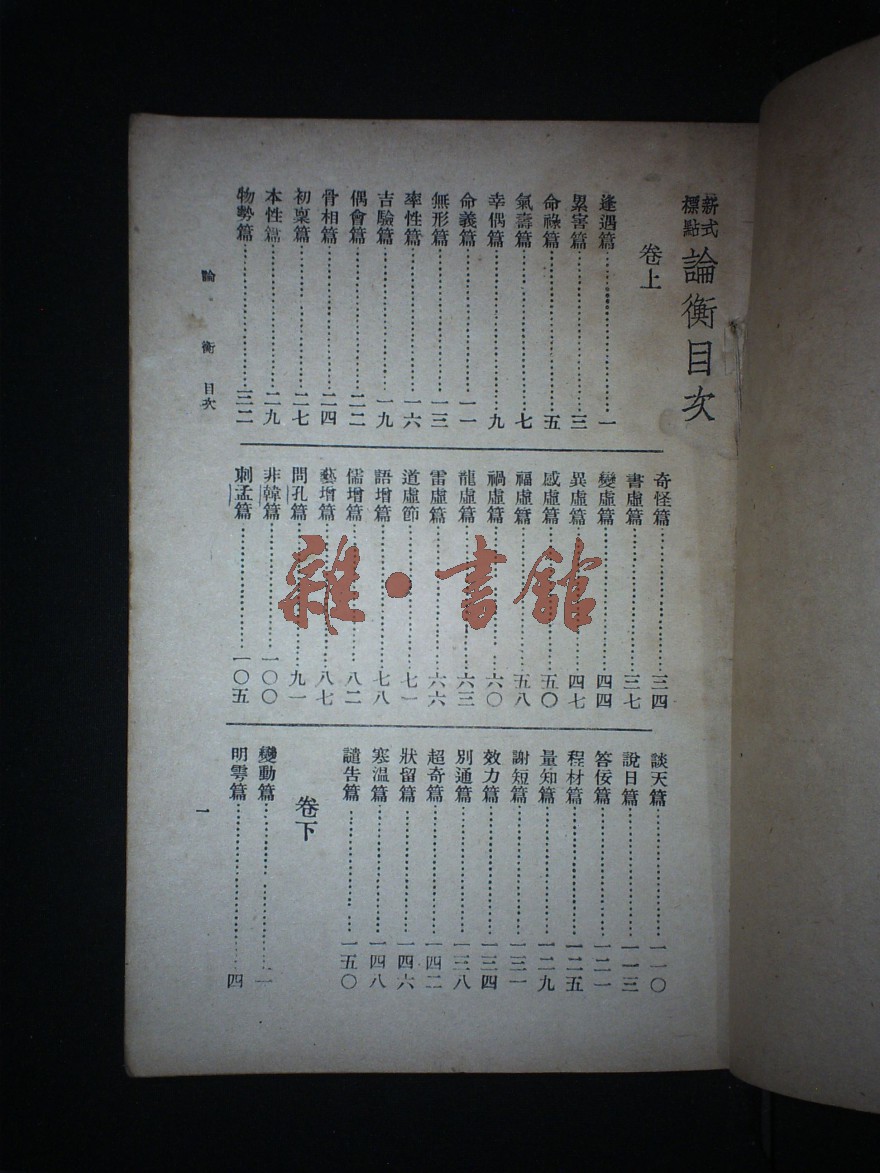 新式標點 論衡目次
卷上
逢遇篇……一
累害篇……三
命祿篇……五
氣壽篇……七
幸偶篇……九
命義篇……一一
無形篇……一三
率性篇……一六
吉驗篇……一九
偶會篇……二二
骨相篇……二四
初稟篇……二七
本性篇……二九
物勢篇……三二
奇怪篇……三四
書虛篇……三七
變虛篇……四四
異虛篇……四七
感虛篇……五〇
福虛篇……五八
禍虛篇……六〇
龍虛篇……六三
雷虛篇……六六
道虛節……七一
語增篇……七八
儒增篇……八二
藝增篇……八七
問孔篇……九一
非韓篇……一〇〇
刺孟篇……一〇五
談天篇……一一〇
說日篇……一一三
答佞篇……一二一
程材篇……一二五
量知篇……一二九
謝短篇……一三一
效力篇……一三四
別通篇……一三八
超奇篇……一四二
狀留篇……一四六
寒溫篇……一四八
譴告篇……一五〇
卷下
變動篇……一
明雩篇……四
論衡 目次
一
雜·書館